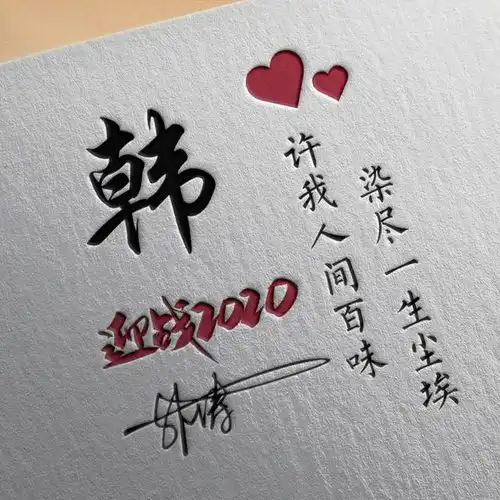 韩
迎战2020
染尽一生尘埃
许我人间百味